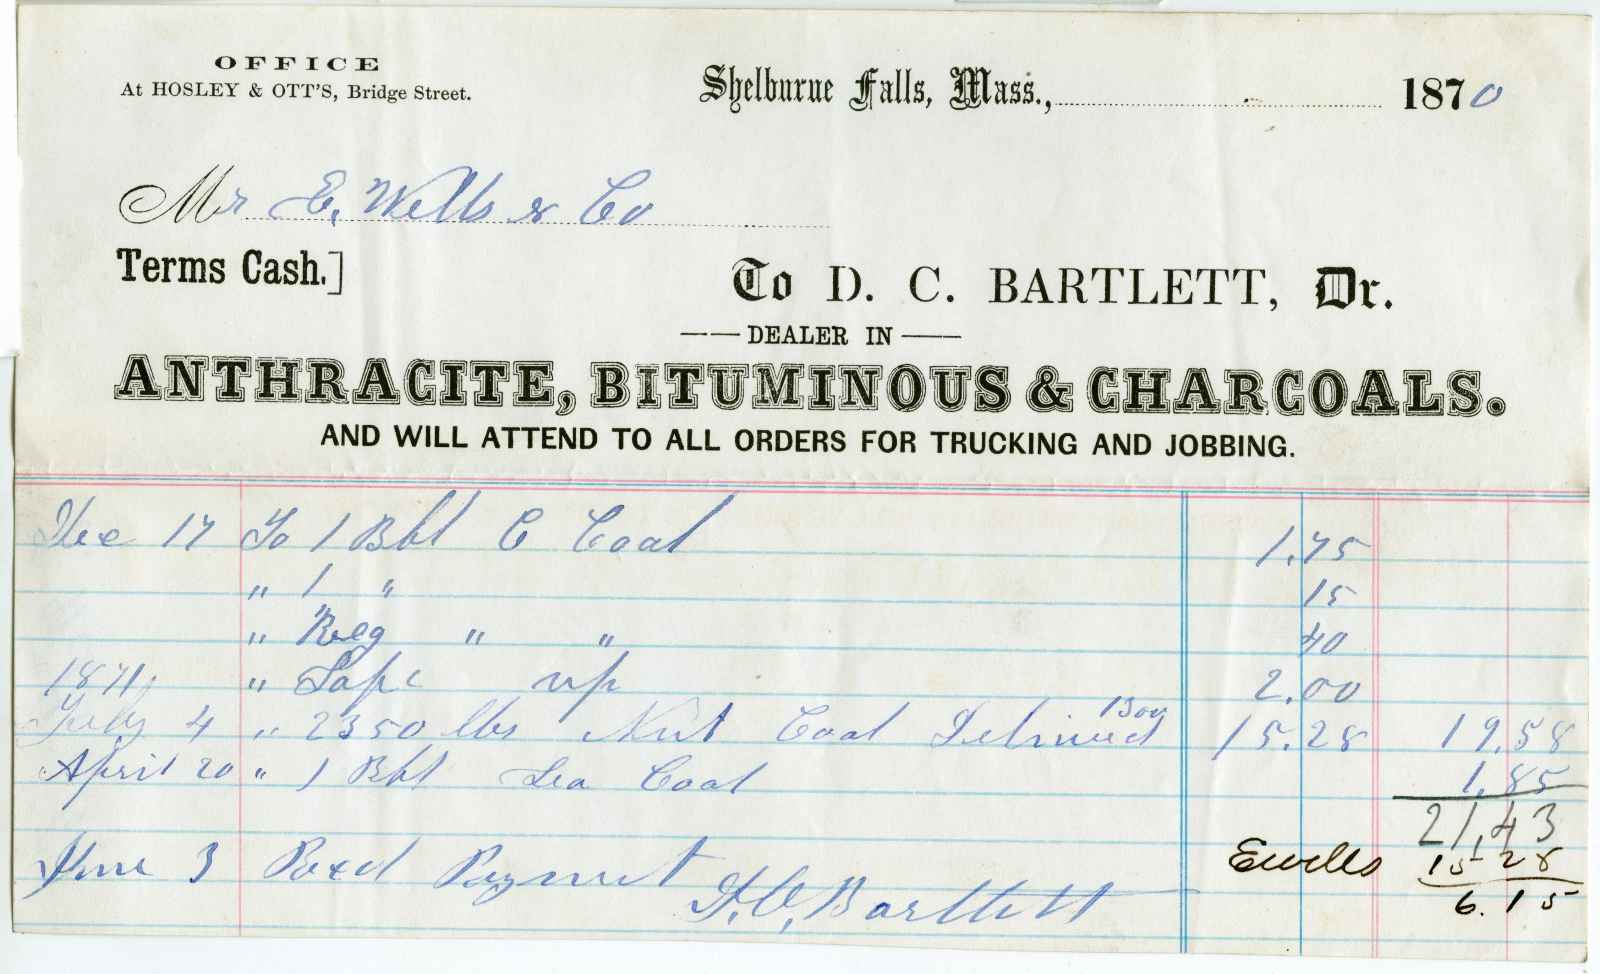 OFFICE
At HOSLEY & OTT'S, Bridge Street.
Shelburne Falls, Mass., 1870
Mr E. Wells & Co
Terms Cash.]
To D. C. BARTLETT, Dr.
DEALER IN
ANTHRACITE, BITUMINOUS & CHARCOALS.
AND WILL ATTEND TO ALL ORDERS FOR TRUCKING AND JOBBING.
Dec 17 To 1 Bbl C Coal 1.75
" 1 " 15
" " " 40
1871, " up 2.00
4 " 2350 lbs Nut Coal 15.28 19.58
April 20 " 1 Bbl Sea Coal 1.85
21.43
June 3 Recd Payment E Wells 15 28
D. C. Bartlett 6.15